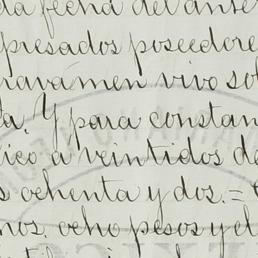 da fecha del anter
presados poseedore
ravámen vivo sob
ta. Y para constan
ico a veintidos de
s ochenta y dos.=
nos. ocho pesos y el